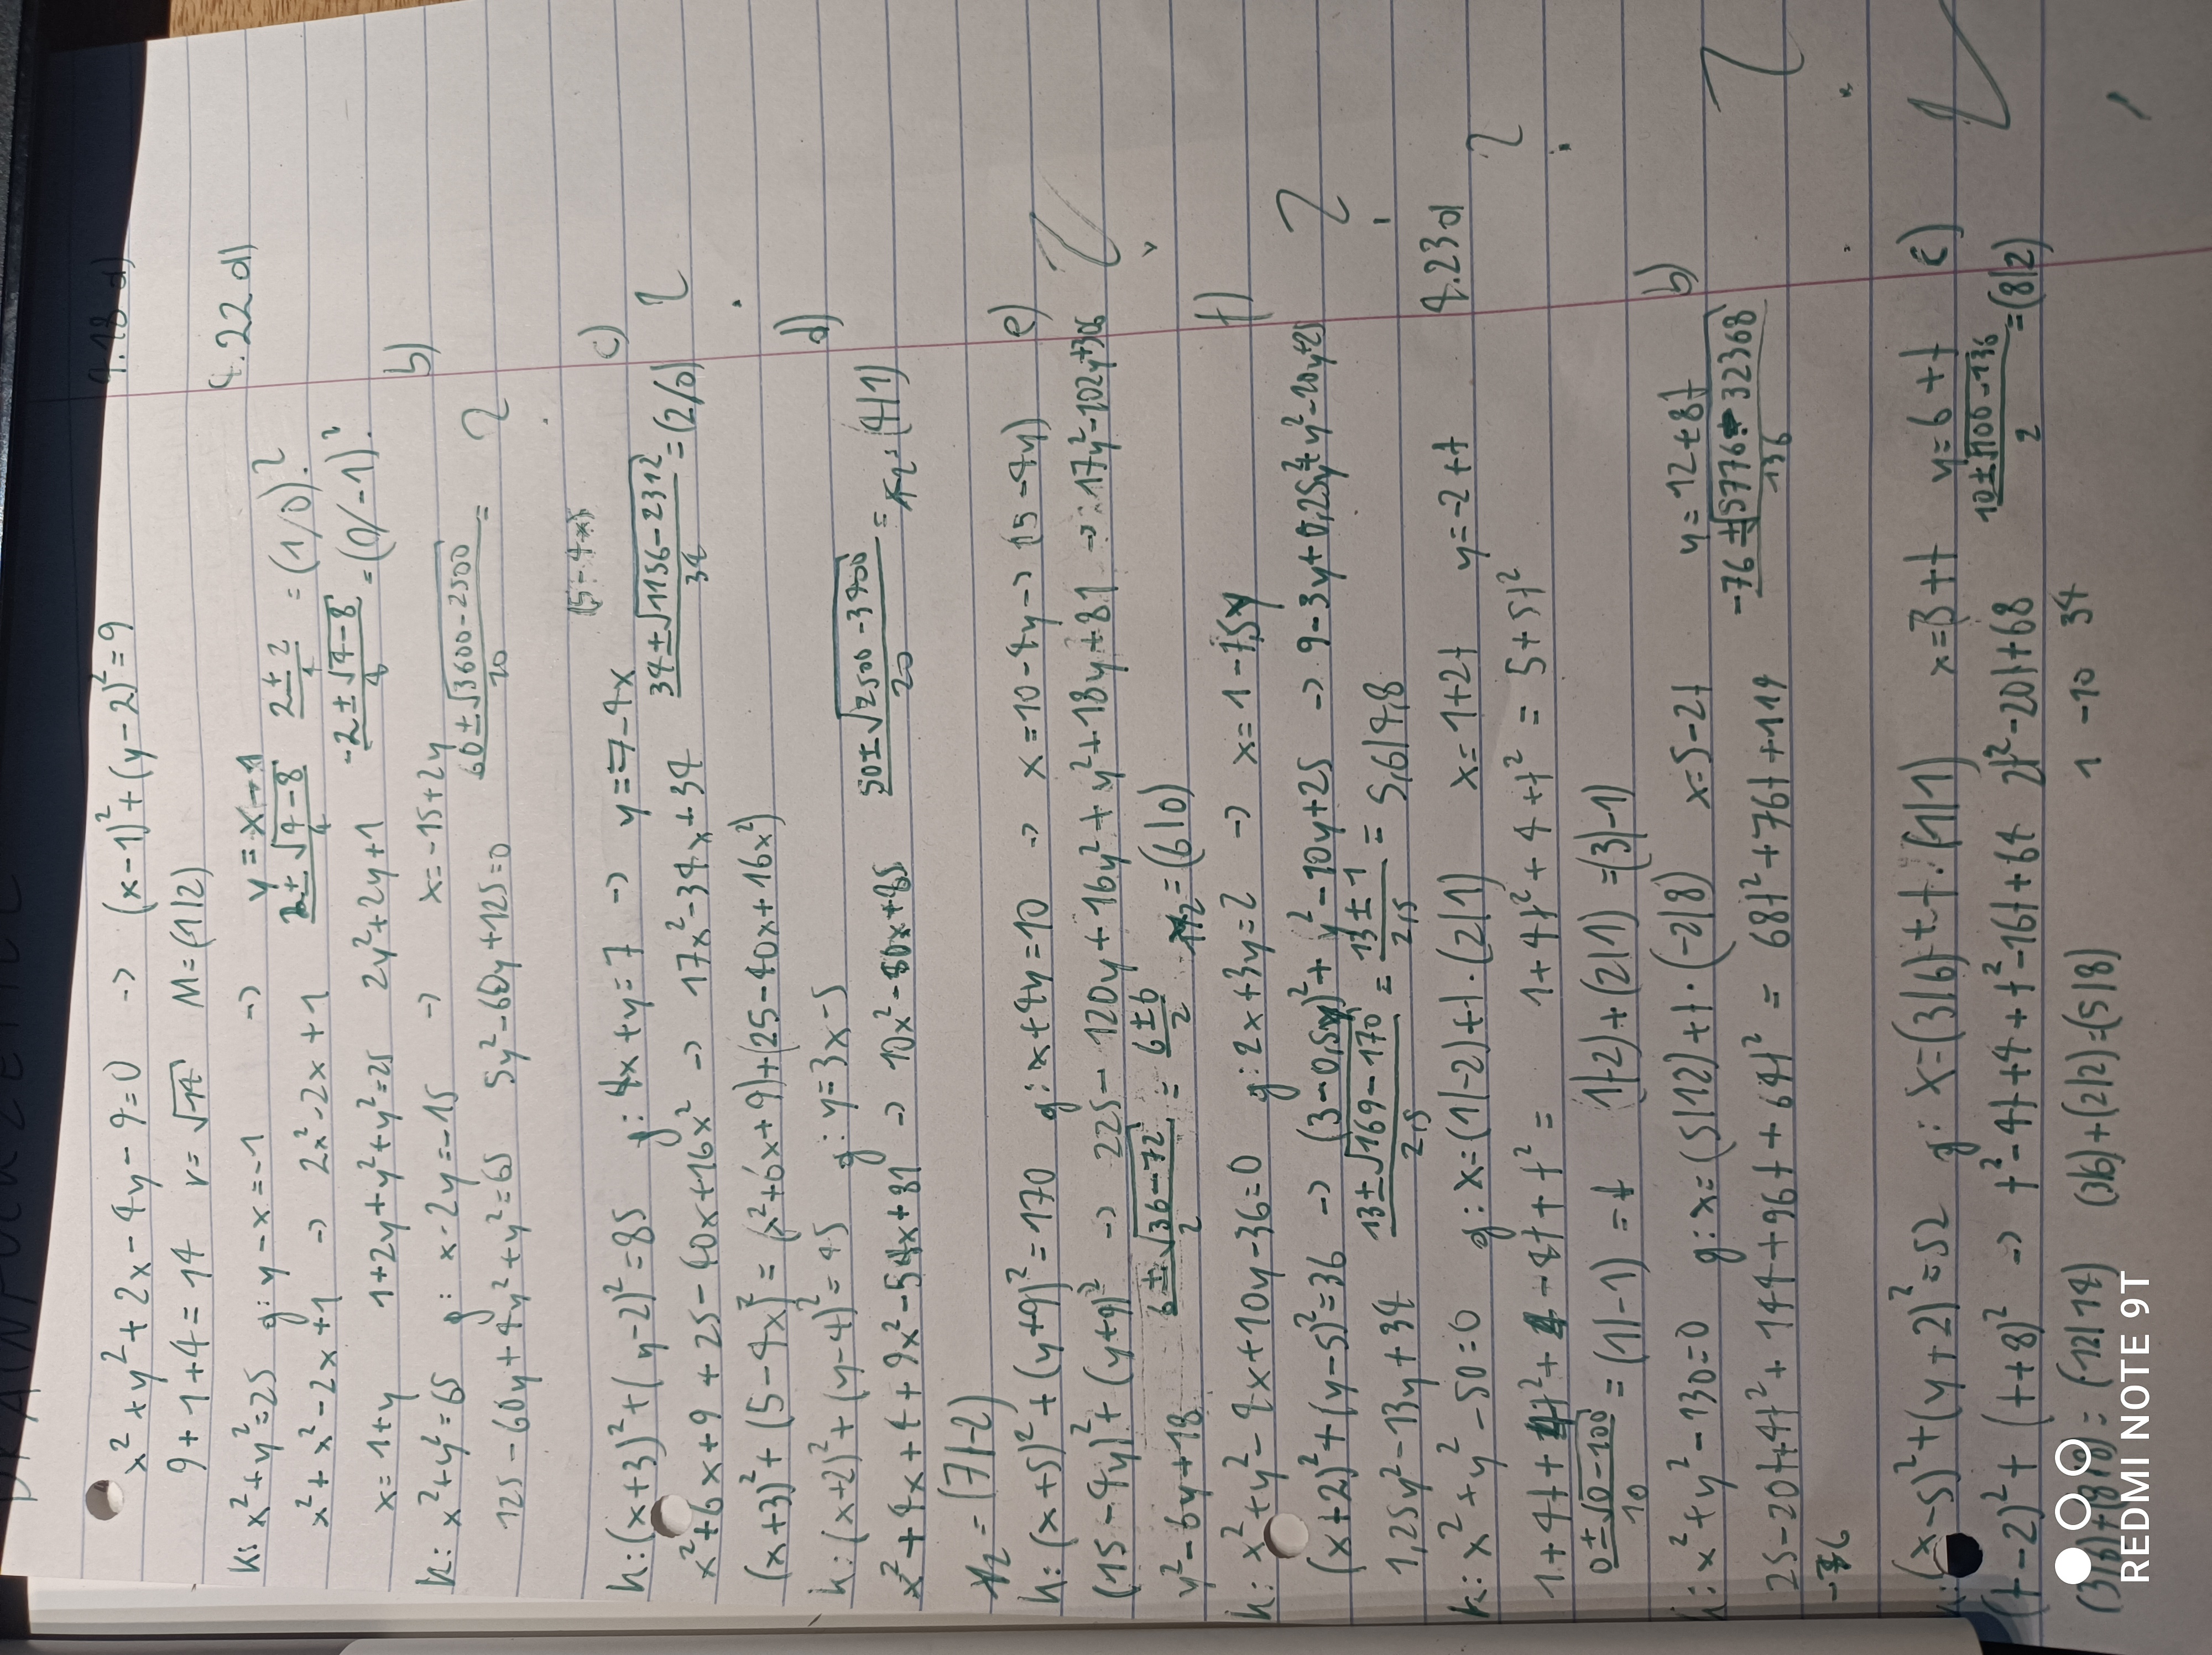 4.18 d)
x² + y² + 2x - 4y - 9 = 0 -> (x-1)² + (y-2)² = 9
9 + 1 + 4 = 14 r = √14 M = (1|2)
4.22 a)
k: x² + y² = 25 g: y - x = -1 -> y = x - 1
x² + x² - 2x + 1 -> 2x² - 2x + 1 2 ± √4-8 / 4 2 ± 2 / 4 = (1/0) ?
x = 1 + y 1 + 2y + y² + y² = 25 2y² + 2y + 1 -2 ± √4-8 / 4 = (0/-1) ?
b)
k: x² + y² = 65 g: x - 2y = -15 -> x = -15 + 2y
125 - 60y + 4y² + y² = 65 5y² - 60y + 125 = 0 60 ± √3600-2500 / 20 = ?
(5-4x)
c)
k: (x+3)² + (y-2)² = 85 g: 4x + y = 7 -> y = 7 - 4x
x² + 6x + 9 + 25 - 40x + 16x² -> 17x² - 34x + 34 34 ± √1156-2312 / 34 = (2/0) ?
(x+3)² + (5-4x)² = (x² + 6x + 9) + (25 - 40x + 16x²)
d)
k: (x+2)² + (y-4)² = 45 g: y = 3x - 5
x² + 4x + 4 + 9x² - 54x + 81 -> 10x² - 50x + 85 50 ± √2500-3400 / 20 = = (4|1)
= (7|-2)
e)
k: (x+5)² + (y+9)² = 170 g: x + 4y = 10 -> x = 10 - 4y -> (15-4y)
(15-4y)² + (y+9)² -> 225 - 120y + 16y² + y² + 18y + 81 -> 17y² - 102y + 306
y² - 6y + 18 6 ± √36-72 / 2 = 6 ± 6 / 2 = (6|0)
f)
k: x² + y² - 4x + 10y - 36 = 0 g: 2x + 3y = 2 -> x = 1 - 1,5y
(x+2)² + (y-5)² = 36 -> (3-0,5y)² + y² - 10y + 25 -> 9 - 3y + 0,25y² + y² - 10y + 25
1,25y² - 13y + 34 13 ± √169-170 / 2,5 = 13 ± 1 / 2,5 = 5,6|4,8 ?
4.23 a)
k: x² + y² - 50 = 0 g: x = (1|-2) + t · (2|1) x = 1 + 2t y = -2 + t
1 + 4t + 4t² + 4 - 4t + t² = 1 + 4t² + 4 + t² = 5 + 5t² ?
0 ± √0-100 / 10 = (1|-1) = t 1|-2) + (2|1) = (3|-1)
b)
k: x² + y² - 130 = 0 g: x = (5|12) + t · (-2|8) x = 5 - 2t y = 12 + 8t
25 - 20t + 4t² + 144 + 96t + 64t² = 68t² + 76t + 114 -76 ± √5776 - 32368 / 136 ?
-76
c)
k: (x-5)² + (y+2)² = 52 g: x = (3|6) + t · (1|1) x = 3 + t y = 6 + t
(t-2)² + (t+8)² -> t² - 4t + 4 + t² - 16t + 64 2t² - 20t + 68 10 ± √100-136 / 2 = (8|2)
(3|6) + (8|8) = (12|14) (3|6) + (2|2) = (5|8) 1 -10 34
REDMI NOTE 9T